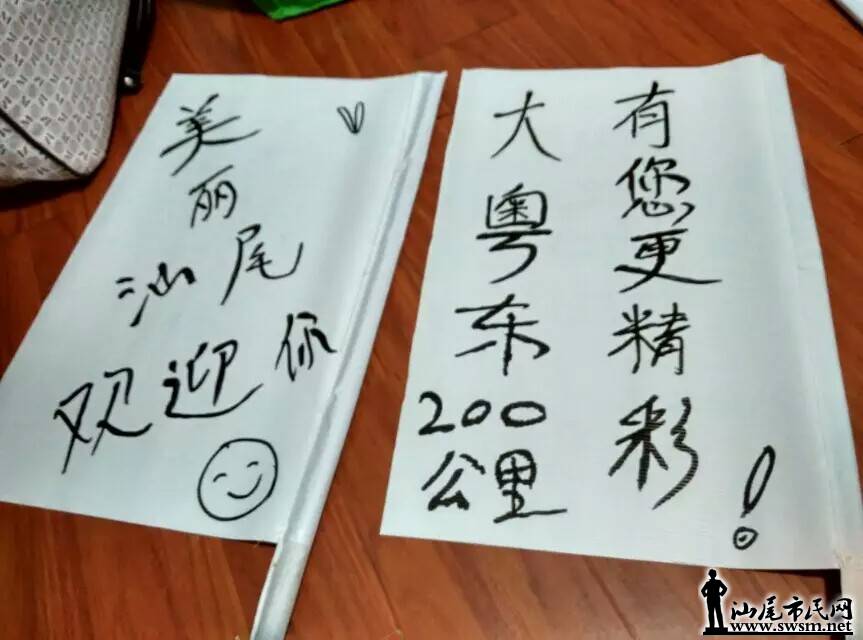 美丽
汕尾
欢迎你
大粤东200公里
有您更精彩!
汕尾市民网
www.swsm.net